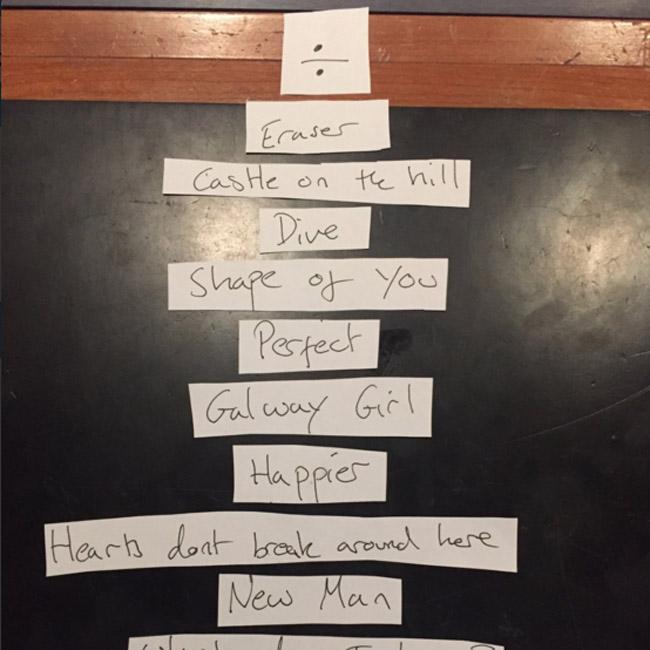 ÷
Eraser
Castle on the hill
Dive
Shape of You
Perfect
Galway Girl
Happier
Hearts dont break around here
New Man